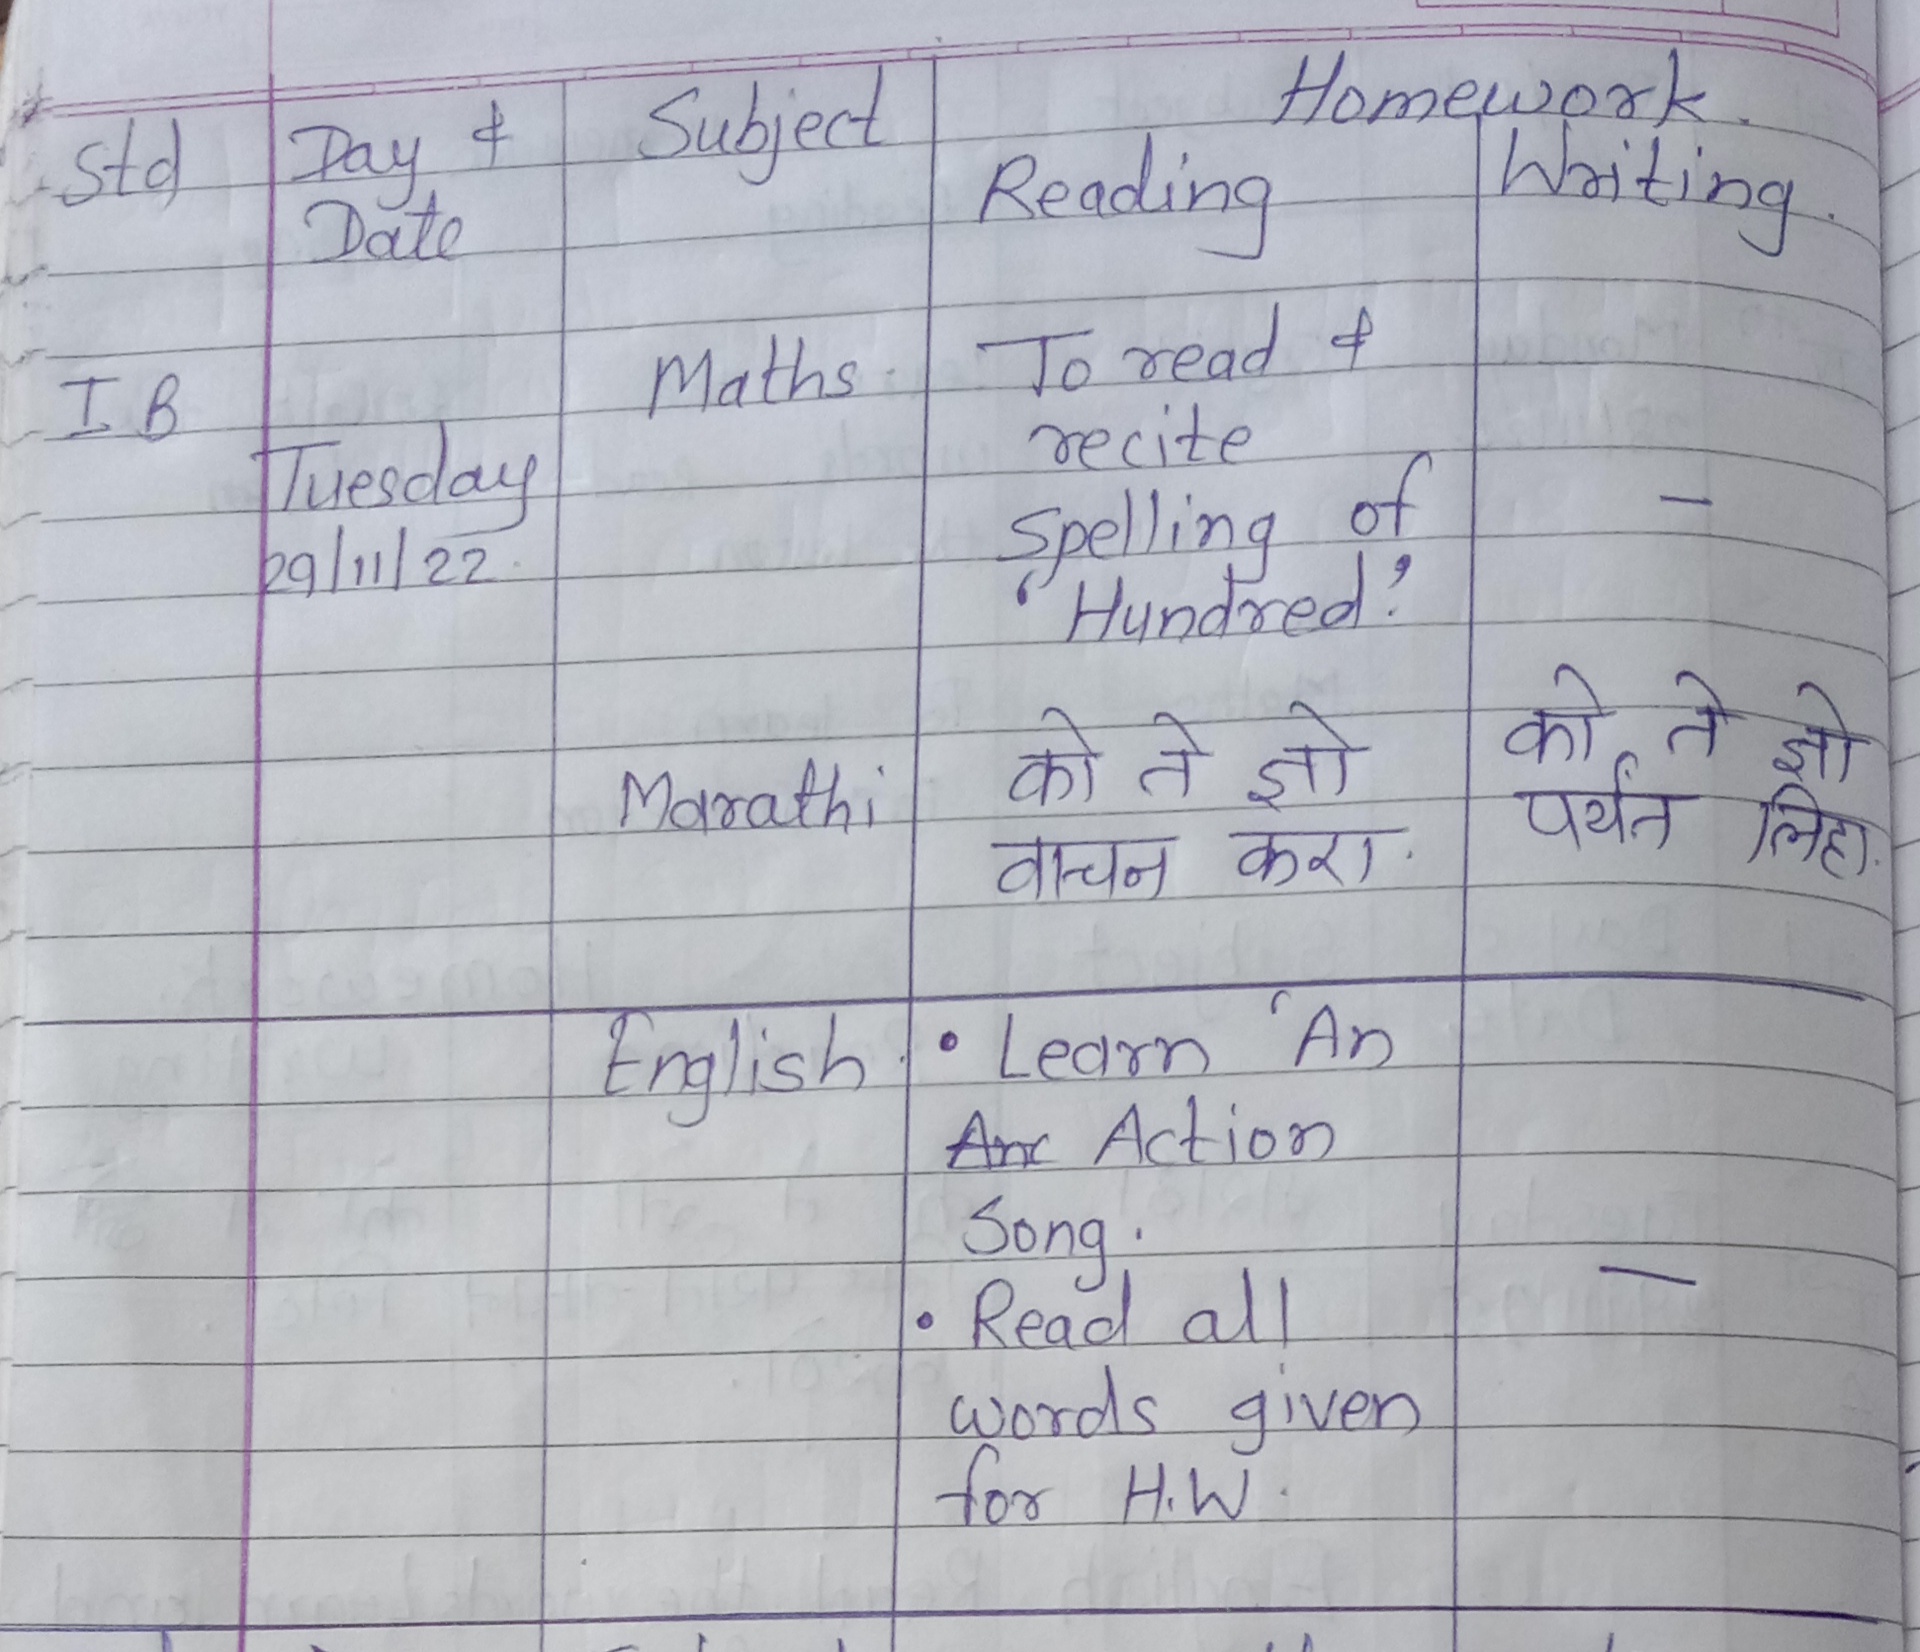 Homework.
Std Day & Subject Reading Writing.
Date
I B Maths. To read &
recite
Tuesday Spelling of –
29/11/22. 'Hundred'.
Marathi को ते ज्ञो को ते ज्ञो
वाचन करा. पर्यंत लिहा.
English. • Learn 'An
Action
Song.
• Read all —
words given
for H.W.